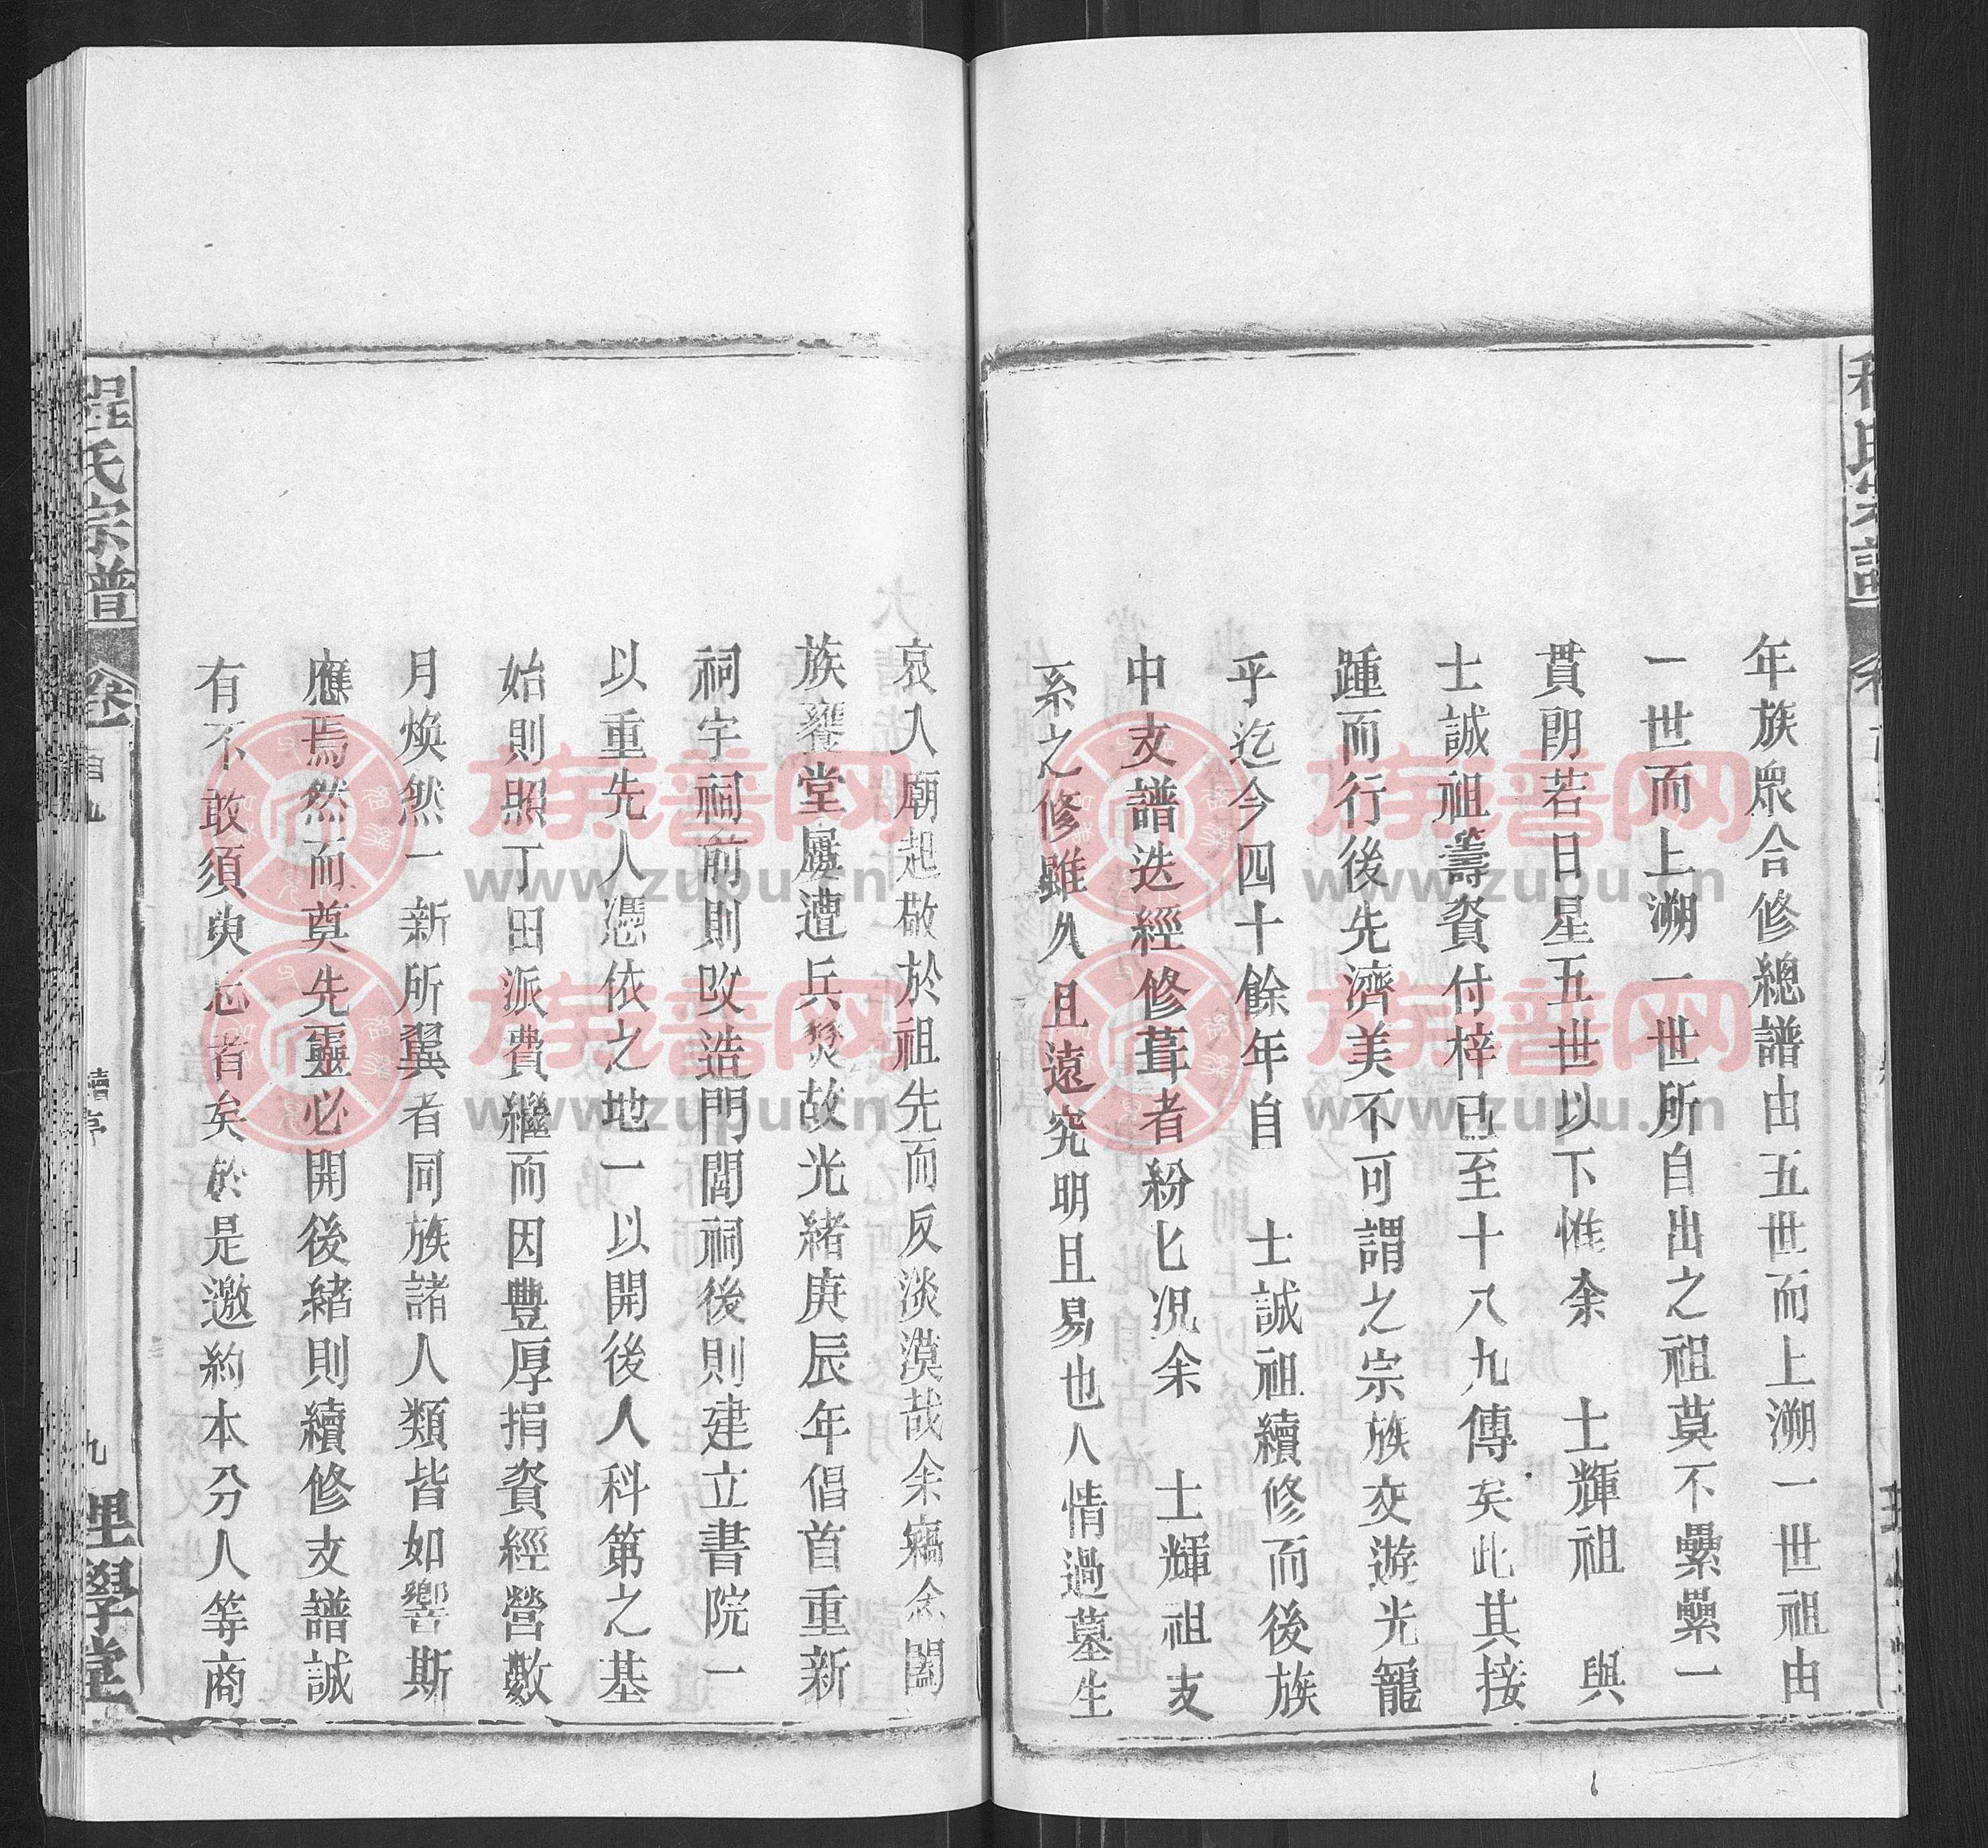 年族眾合修總譜由五世而上溯一世祖由
一世而上溯一世所自出之祖莫不纍纍一
貫朗若日星五世以下惟余 士輝祖 與
士誠祖籌資付梓已至十八九傳矣此其接
踵而行後先濟美不可謂之宗族交遊光寵
乎迄今四十餘年自 士誠祖續修而後族
中支譜迭經修葺者紛匕况余 士輝祖支
系之修雖久且遠究明且易也人情過墓生
哀入廟起敬於祖先而反淡漠哉余竊念闔
族饗堂屢遭兵燹故光緒庚辰年倡首重新
祠宇祠前則改造門閭祠後則建立書院一
以重先人憑依之地一以開後人科第之基
始則照丁田派費繼而因豐厚捐資經營數
月煥然一新所翼者同族諸人類皆如響斯
應焉然而奠先靈必開後緒則續修支譜誠
有不敢須臾忘者矣於是邀約本分人等商
程氏宗譜
卷首九
續序
九
理學堂
族谱网
www.zupu.cn
族谱网
www.zupu.cn
族谱网
www.zupu.cn
族谱网
www.zupu.cn